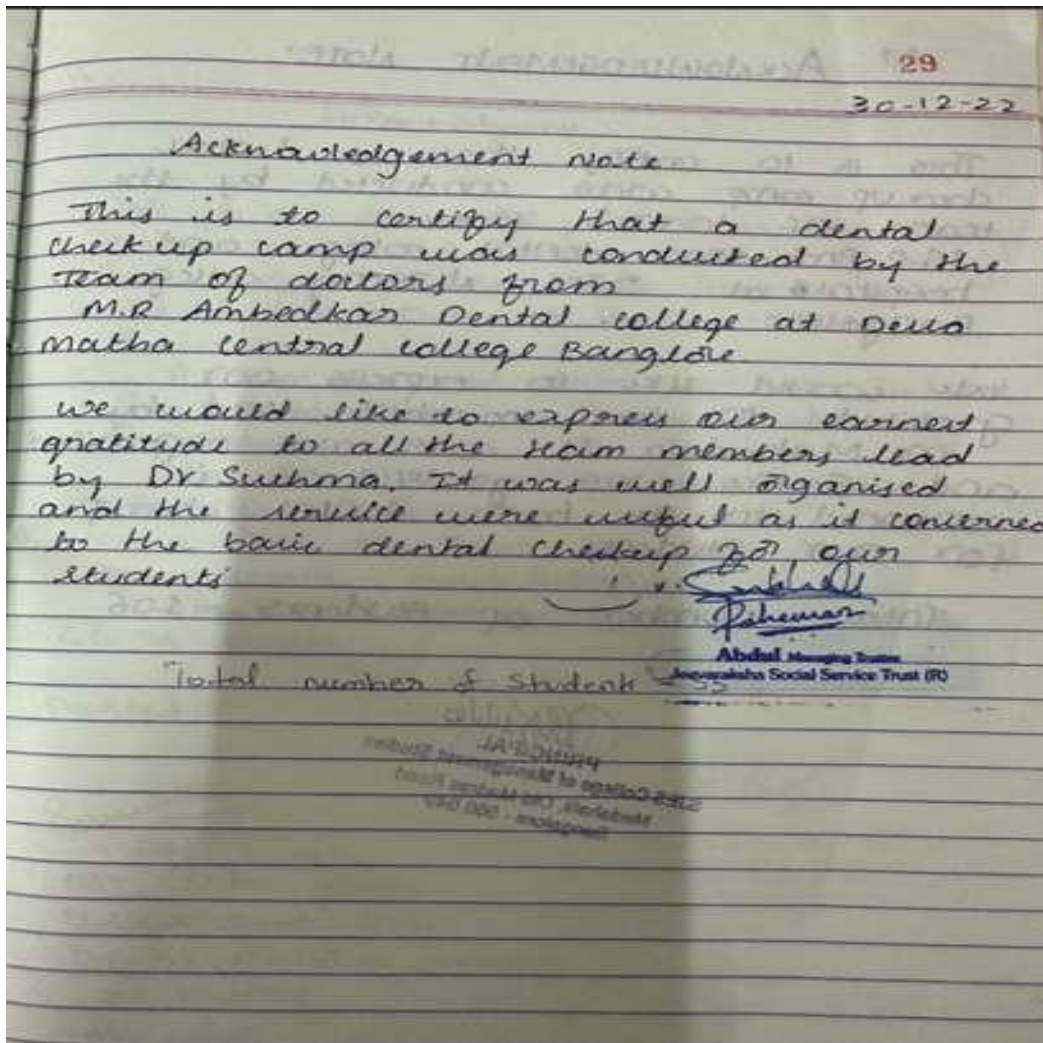 29
30-12-22
Acknowledgement Note
This is to certify that a dental
check up camp was conducted by the
Team of doctors from
M.R Ambedkar Dental college at Deva
matha central college Banglore
we would like to express our earnest
gratitude to all the team members lead
by Dr Sushma. It was well organised
and the service were useful as it concerned
to the basic dental checkup for our
students
Abdul Managing Trustee
Jeevaraksha Social Service Trust (R)
Total number of Student
PRINCIPAL
SJES College of Management Studies